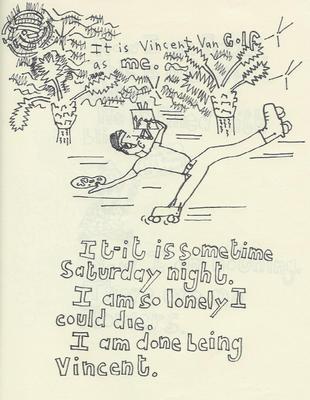 It is Vincent Van GOlF
as me.
It-it is sometime
Saturday night.
I am so lonely I
could die.
I am done being
Vincent.